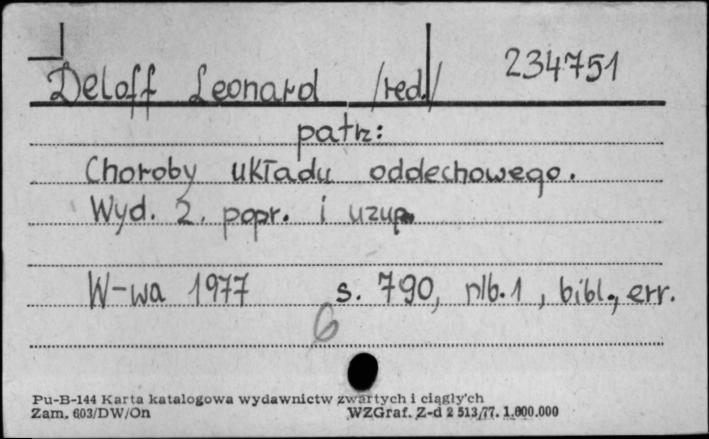 234751
Deloff Leonard /red./
patrz:
Choroby układu oddechowego.
Wyd. 2. popr. i uzup.
W-wa 1977 s. 790, nlb. 1, bibl., err.
6
Pu-B-144 Karta katalogowa wydawnictw zwartych i ciągłych
Zam. 603/DW/On WZGraf. Z-d 2 513/77. 1.000.000